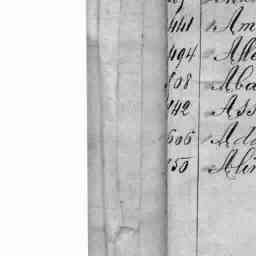 441 Am
494 Alle
808 Aba
142 Ass
606 Ada
150 Alin